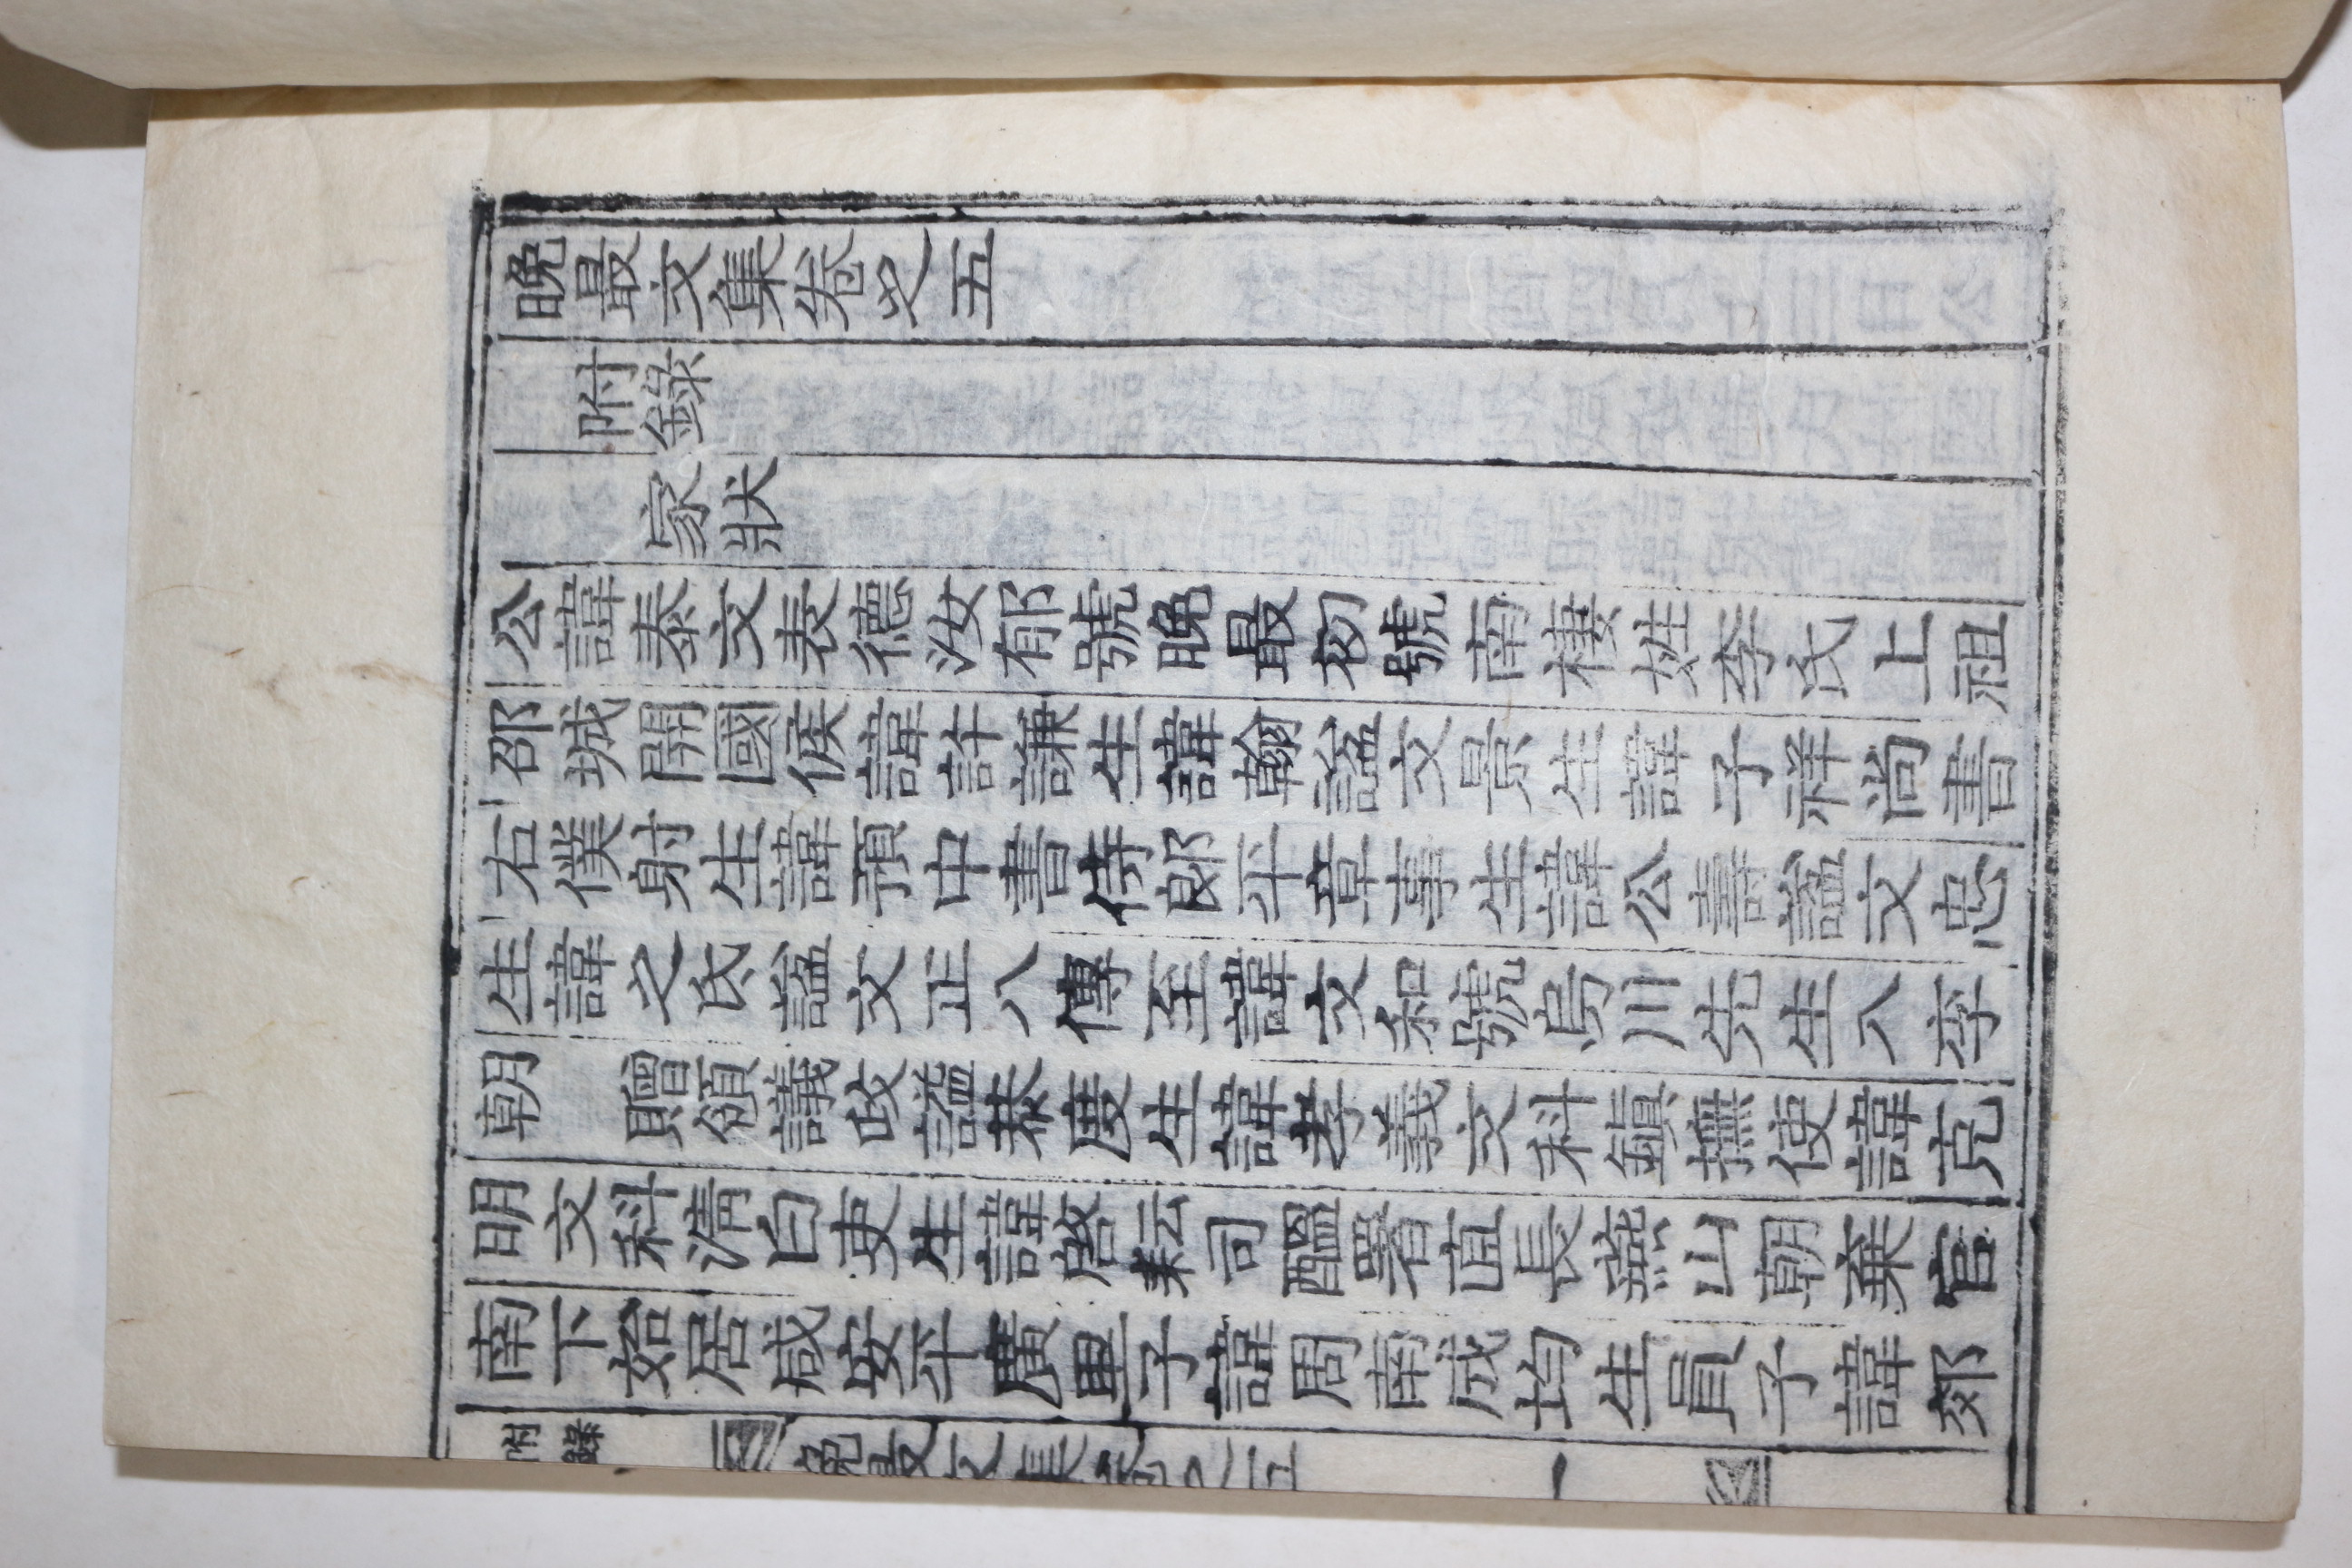 晩最文集卷之五
附錄
家狀
公諱泰文表德汝郁號晩最初號南棲姓李氏上祖
邵城開國侯諱許謙生諱翰諡文景生諱子祥尚書
右僕射生諱預中書侍郎平章事生諱公壽諡文忠
生諱之氐諡文正八傳至諱文和號烏川先生入李
朝 贈領議政謚恭度生諱孝義文科鎭撫使諱克
明文科淸白吏生諱啓耘司醞署直長燕山朝棄官
南下始居咸安平廣里子諱周南成均生員子諱郊
附錄 晩最文集卷之五 一